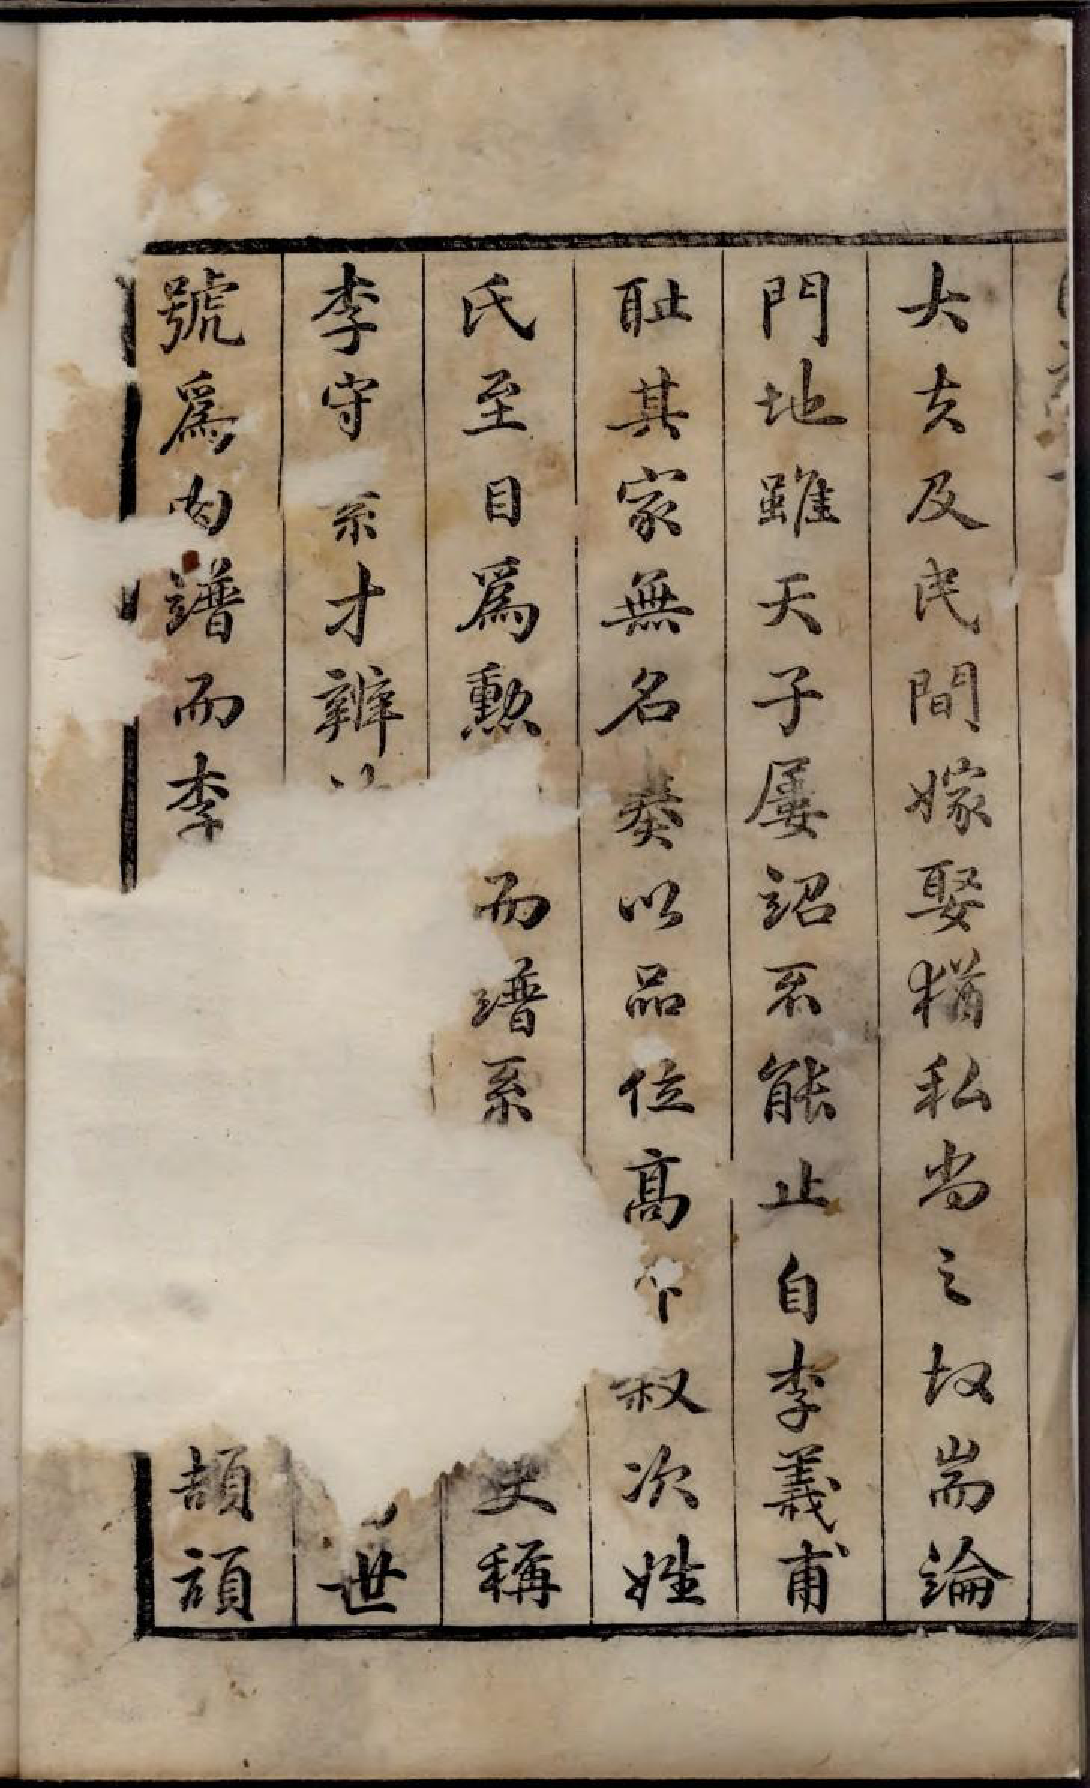 大夫及民間嫁娶猶私尚之故耑論
門地雖天子屢詔不能止自李義甫
耻其家無名奏以品位高下叙次姓
氏至目為勲 而譜系 史稱
李守素才辨 世
號為肉譜而李 頡頏